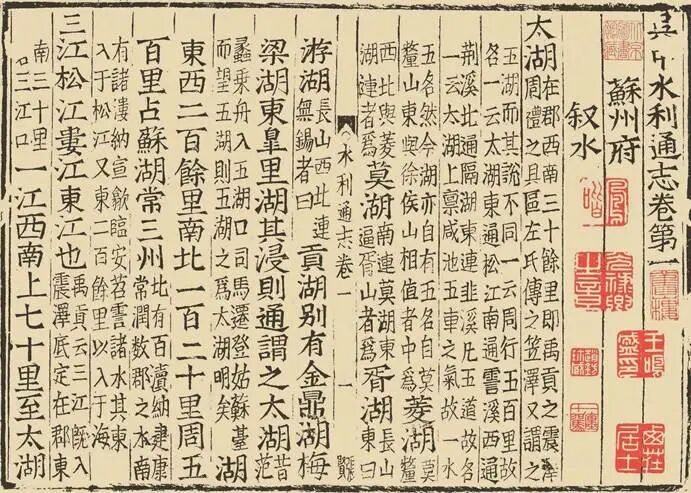 吳中水利通志卷第一
蘇州府
叙水
太湖在郡西南三十餘里即禹貢之震澤
周禮之具區左氏傳之笠澤又謂之
五湖而其說不同一云周行五百里故
名一云太湖東通松江南通霅溪西通
荆溪北通隔湖東連韭溪凡五道故名
一云太湖上禀咸池五車之氣故一水
五名然今湖亦自有五名自莫
釐山東與徐侯山相值者中爲菱湖莫釐
西北與菱湖連者爲莫湖南連莫湖東逼胥山者爲胥湖長山東曰
水利通志卷一
一
游湖長山西北連無錫者曰貢湖别有金鼎湖梅
梁湖東皐里湖其浸則通謂之太湖昔范
蠡乘舟入五湖口司馬遷登姑蘇臺
而望五湖則五湖之爲太湖明矣湖
東西二百餘里南北一百二十里周五
百里占蘇湖常三州北有百瀆納建康常潤數郡之水南
有諸漊納宣歙臨安苕霅諸水其東
入于松江又東二百餘里以入于海
三江松江婁江東江也禹貢云三江既入震澤底定在郡東
南三十里三江口一江西南上七十里至太湖
王鳴盛印
西莊居士